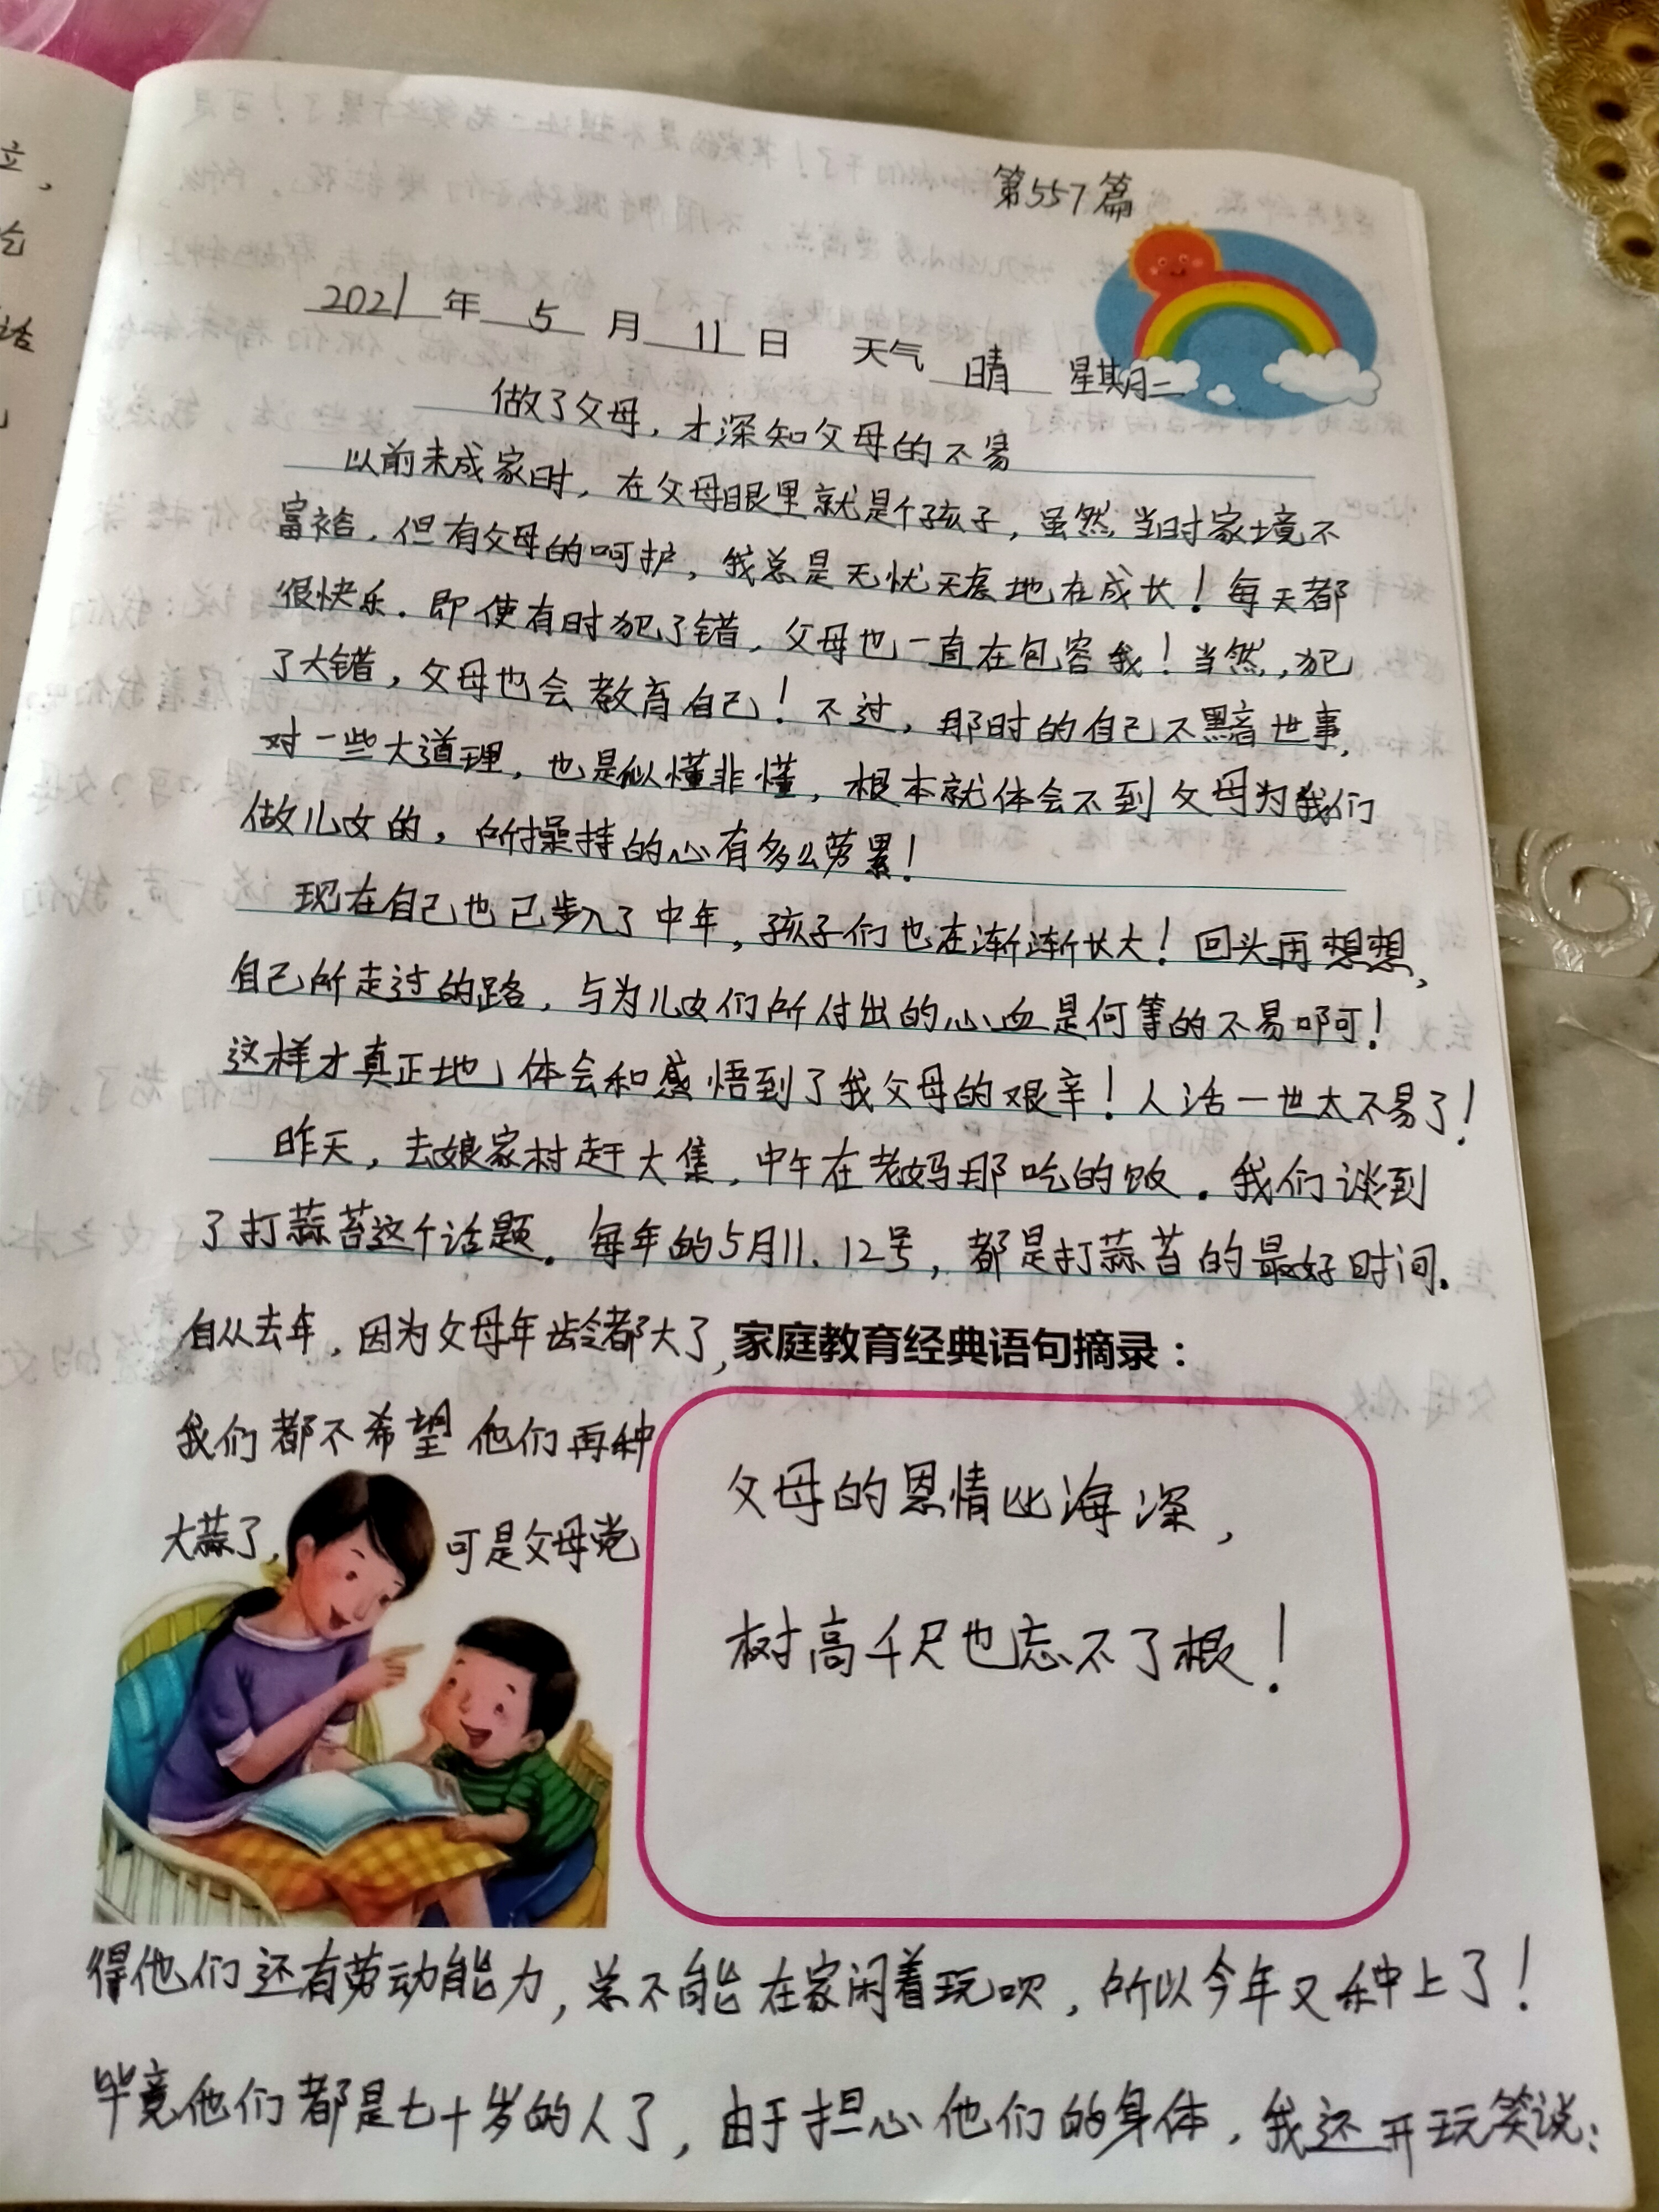 第557篇
2021年5月11日 天气 晴 星期二
做了父母，才深知父母的不易
以前未成家时，在父母眼里就是个孩子，虽然当时家境不
富裕．但有父母的呵护，我总是无忧无虑地在成长！每天都
很快乐．即使有时犯了错，父母也一直在包容我！当然，犯
了大错，父母也会教育自己！不过，那时的自己不黯世事，
对一些大道理，也是似懂非懂，根本就体会不到父母为我们
做儿女的，所操持的心有多么劳累！
现在自己也已步入了中年，孩子们也在渐渐长大！回头再想想，
自己所走过的路，与为儿女们所付出的心血是何等的不易啊！
这样才真正地体会和感悟到了我父母的艰辛！人活一世太不易了！
昨天，去娘家村赶大集，中午在老妈那吃的饭．我们谈到
了打蒜苔这个话题。每年的5月11、12号，都是打蒜苔的最好时间．
自从去年，因为父母年龄都大了，
我们都不希望他们再种
大蒜了，可是父母觉
家庭教育经典语句摘录：
父母的恩情比海深，
树高千尺也忘不了根！
得他们还有劳动能力，总不能在家闲着玩呗，所以今年又种上了！
毕竟他们都是七十岁的人了，由于担心他们的身体，我还开玩笑说：
立，
话